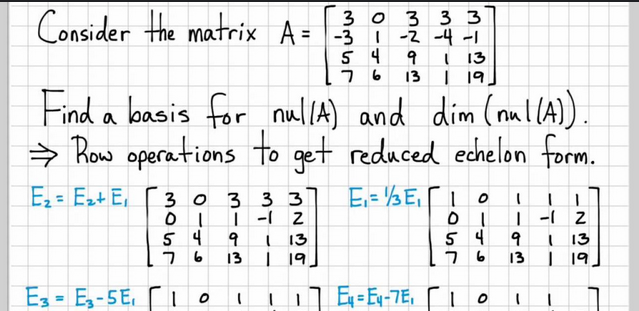 Consider the matrix A = [ 3 0 3 3 3
-3 1 -2 -4 -1
5 4 9 1 13
7 6 13 1 19 ]
Find a basis for nul(A) and dim(nul(A)).
⇒ Row operations to get reduced echelon form.
E₂ = E₂+E₁ [ 3 0 3 3 3 ] E₁ = 1/3E₁ [ 1 0 1 1 1 ]
0 1 1 -1 2 0 1 1 -1 2
5 4 9 1 13 5 4 9 1 13
7 6 13 1 19 7 6 13 1 19
E₃ = E₃-5E₁ [ 1 0 1 1 1 ] E₄=E₄-7E₁ [ 1 0 1 1